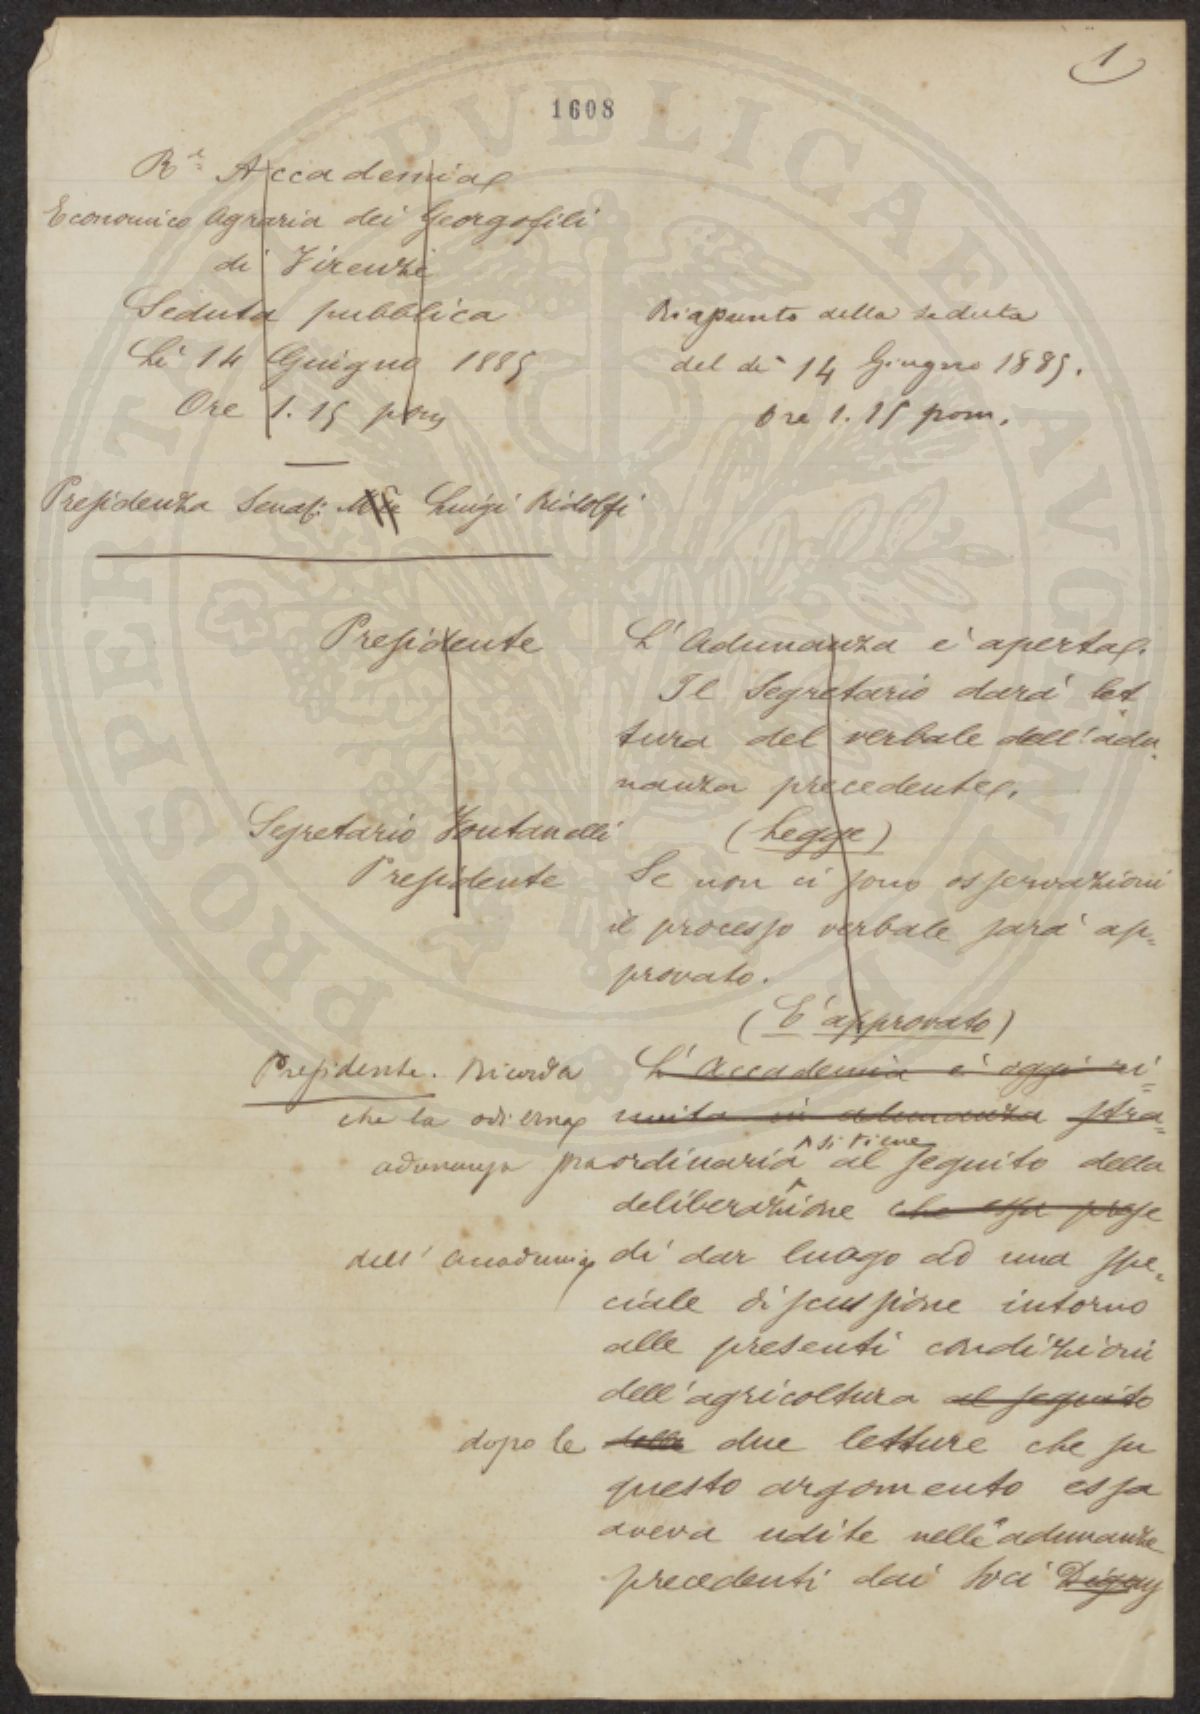 1
1608
R.e Accademia
Economico Agraria dei Georgofili
di Firenze
Seduta pubblica
Li 14 Giugno 1885
Ore 1.15 pom
Riapunto della seduta
del dì 14 Giugno 1885.
Ore 1.15 pom.
Presidenza Senat: Luigi Ridolfi
Presidente
L'Adunanza è aperta.
Il Segretario darà let
tura del verbale dell'adu
nanza precedente.
Segretario Fontanelli
(Legge)
Presidente
Se non ci sono osservazioni
il processo verbale sarà ap=
provato.
(E' approvato)
Presidente. Ricorda L'Accademia è oggi ri=
che la odierna unita in adunanza stra=
adunanza straordinaria si tiene al seguito della
deliberazione che essa prese
dell'Accademia di dar luogo ad una spe=
ciale discussione intorno
alle presenti condizioni
dell'agricoltura al seguito
dopo le delle due letture che su
questo argomento essa
aveva udite nelle adunanze
precedenti dai Soci Digny
PROSPERITATI PUBLICAE AUGENDAE